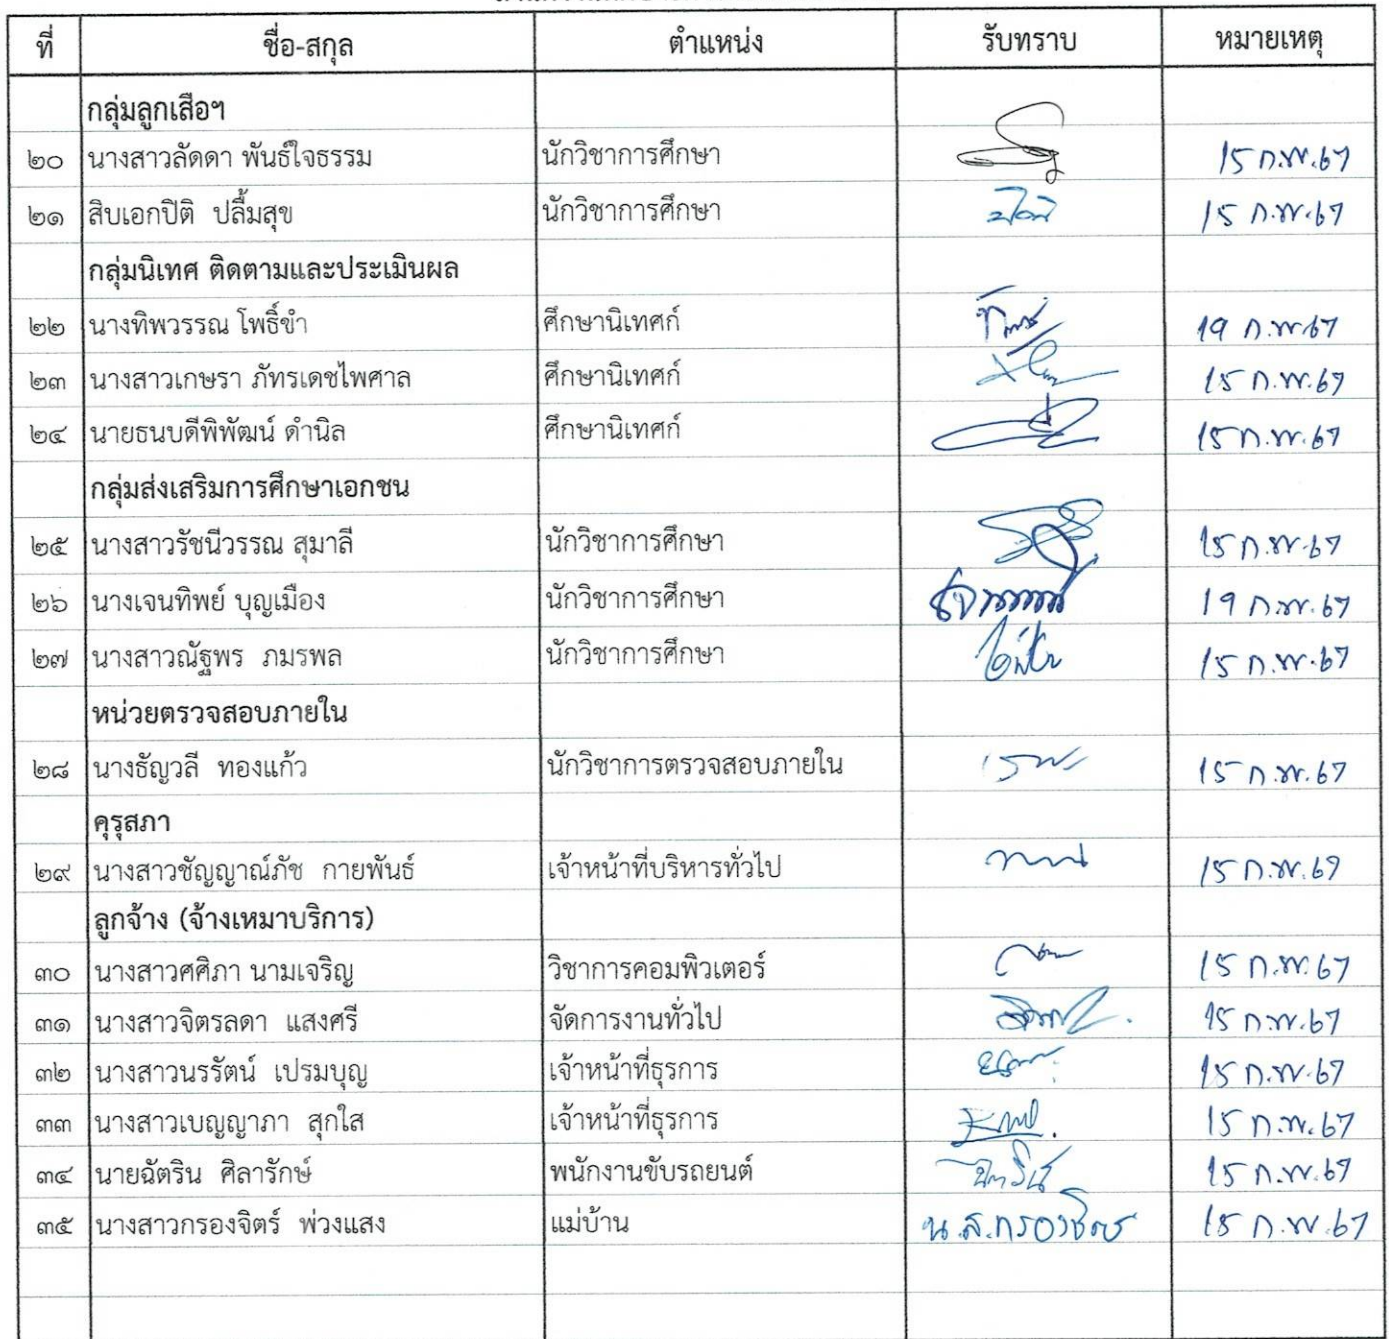 ที่ ชื่อ-สกุล ตำแหน่ง รับทราบ หมายเหตุ
กลุ่มลูกเสือฯ
๒๐ นางสาวลัดดา พันธ์ใจธรรม นักวิชาการศึกษา 15 ก.พ.67
๒๑ สิบเอกปิติ ปลื้มสุข นักวิชาการศึกษา 15 ก.พ.67
กลุ่มนิเทศ ติดตามและประเมินผล
๒๒ นางทิพวรรณ โพธิ์ขำ ศึกษานิเทศก์ 19 ก.พ.67
๒๓ นางสาวเกษรา ภัทรเดชไพศาล ศึกษานิเทศก์ 15 ก.พ.67
๒๔ นายธนบดีพิพัฒน์ ดำนิล ศึกษานิเทศก์ 15 ก.พ.67
กลุ่มส่งเสริมการศึกษาเอกชน
๒๕ นางสาวรัชนีวรรณ สุมาลี นักวิชาการศึกษา 15 ก.พ.67
๒๖ นางเจนทิพย์ บุญเมือง นักวิชาการศึกษา 19 ก.พ.67
๒๗ นางสาวณัฐพร ภมรพล นักวิชาการศึกษา 15 ก.พ.67
หน่วยตรวจสอบภายใน
๒๘ นางธัญวลี ทองแก้ว นักวิชาการตรวจสอบภายใน 15 ก.พ.67
คุรุสภา
๒๙ นางสาวชัญญาณ์ภัช กายพันธ์ เจ้าหน้าที่บริหารทั่วไป 15 ก.พ.67
ลูกจ้าง (จ้างเหมาบริการ)
๓๐ นางสาวศศิภา นามเจริญ วิชาการคอมพิวเตอร์ 15 ก.พ.67
๓๑ นางสาวจิตรลดา แสงศรี จัดการงานทั่วไป 15 ก.พ.67
๓๒ นางสาวนรรัตน์ เปรมบุญ เจ้าหน้าที่ธุรการ 15 ก.พ.67
๓๓ นางสาวเบญญาภา สุกใส เจ้าหน้าที่ธุรการ 15 ก.พ.67
๓๔ นายฉัตริน ศิลารักษ์ พนักงานขับรถยนต์ ฉัตริน 15 ก.พ.67
๓๕ นางสาวกรองจิตร์ พ่วงแสง แม่บ้าน น.ส.กรองจิตร 15 ก.พ.67